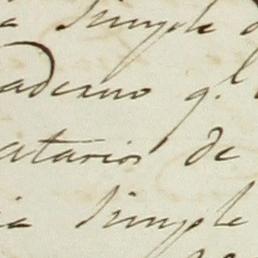 a simple d
aderno q.l
atarios de
ia simple